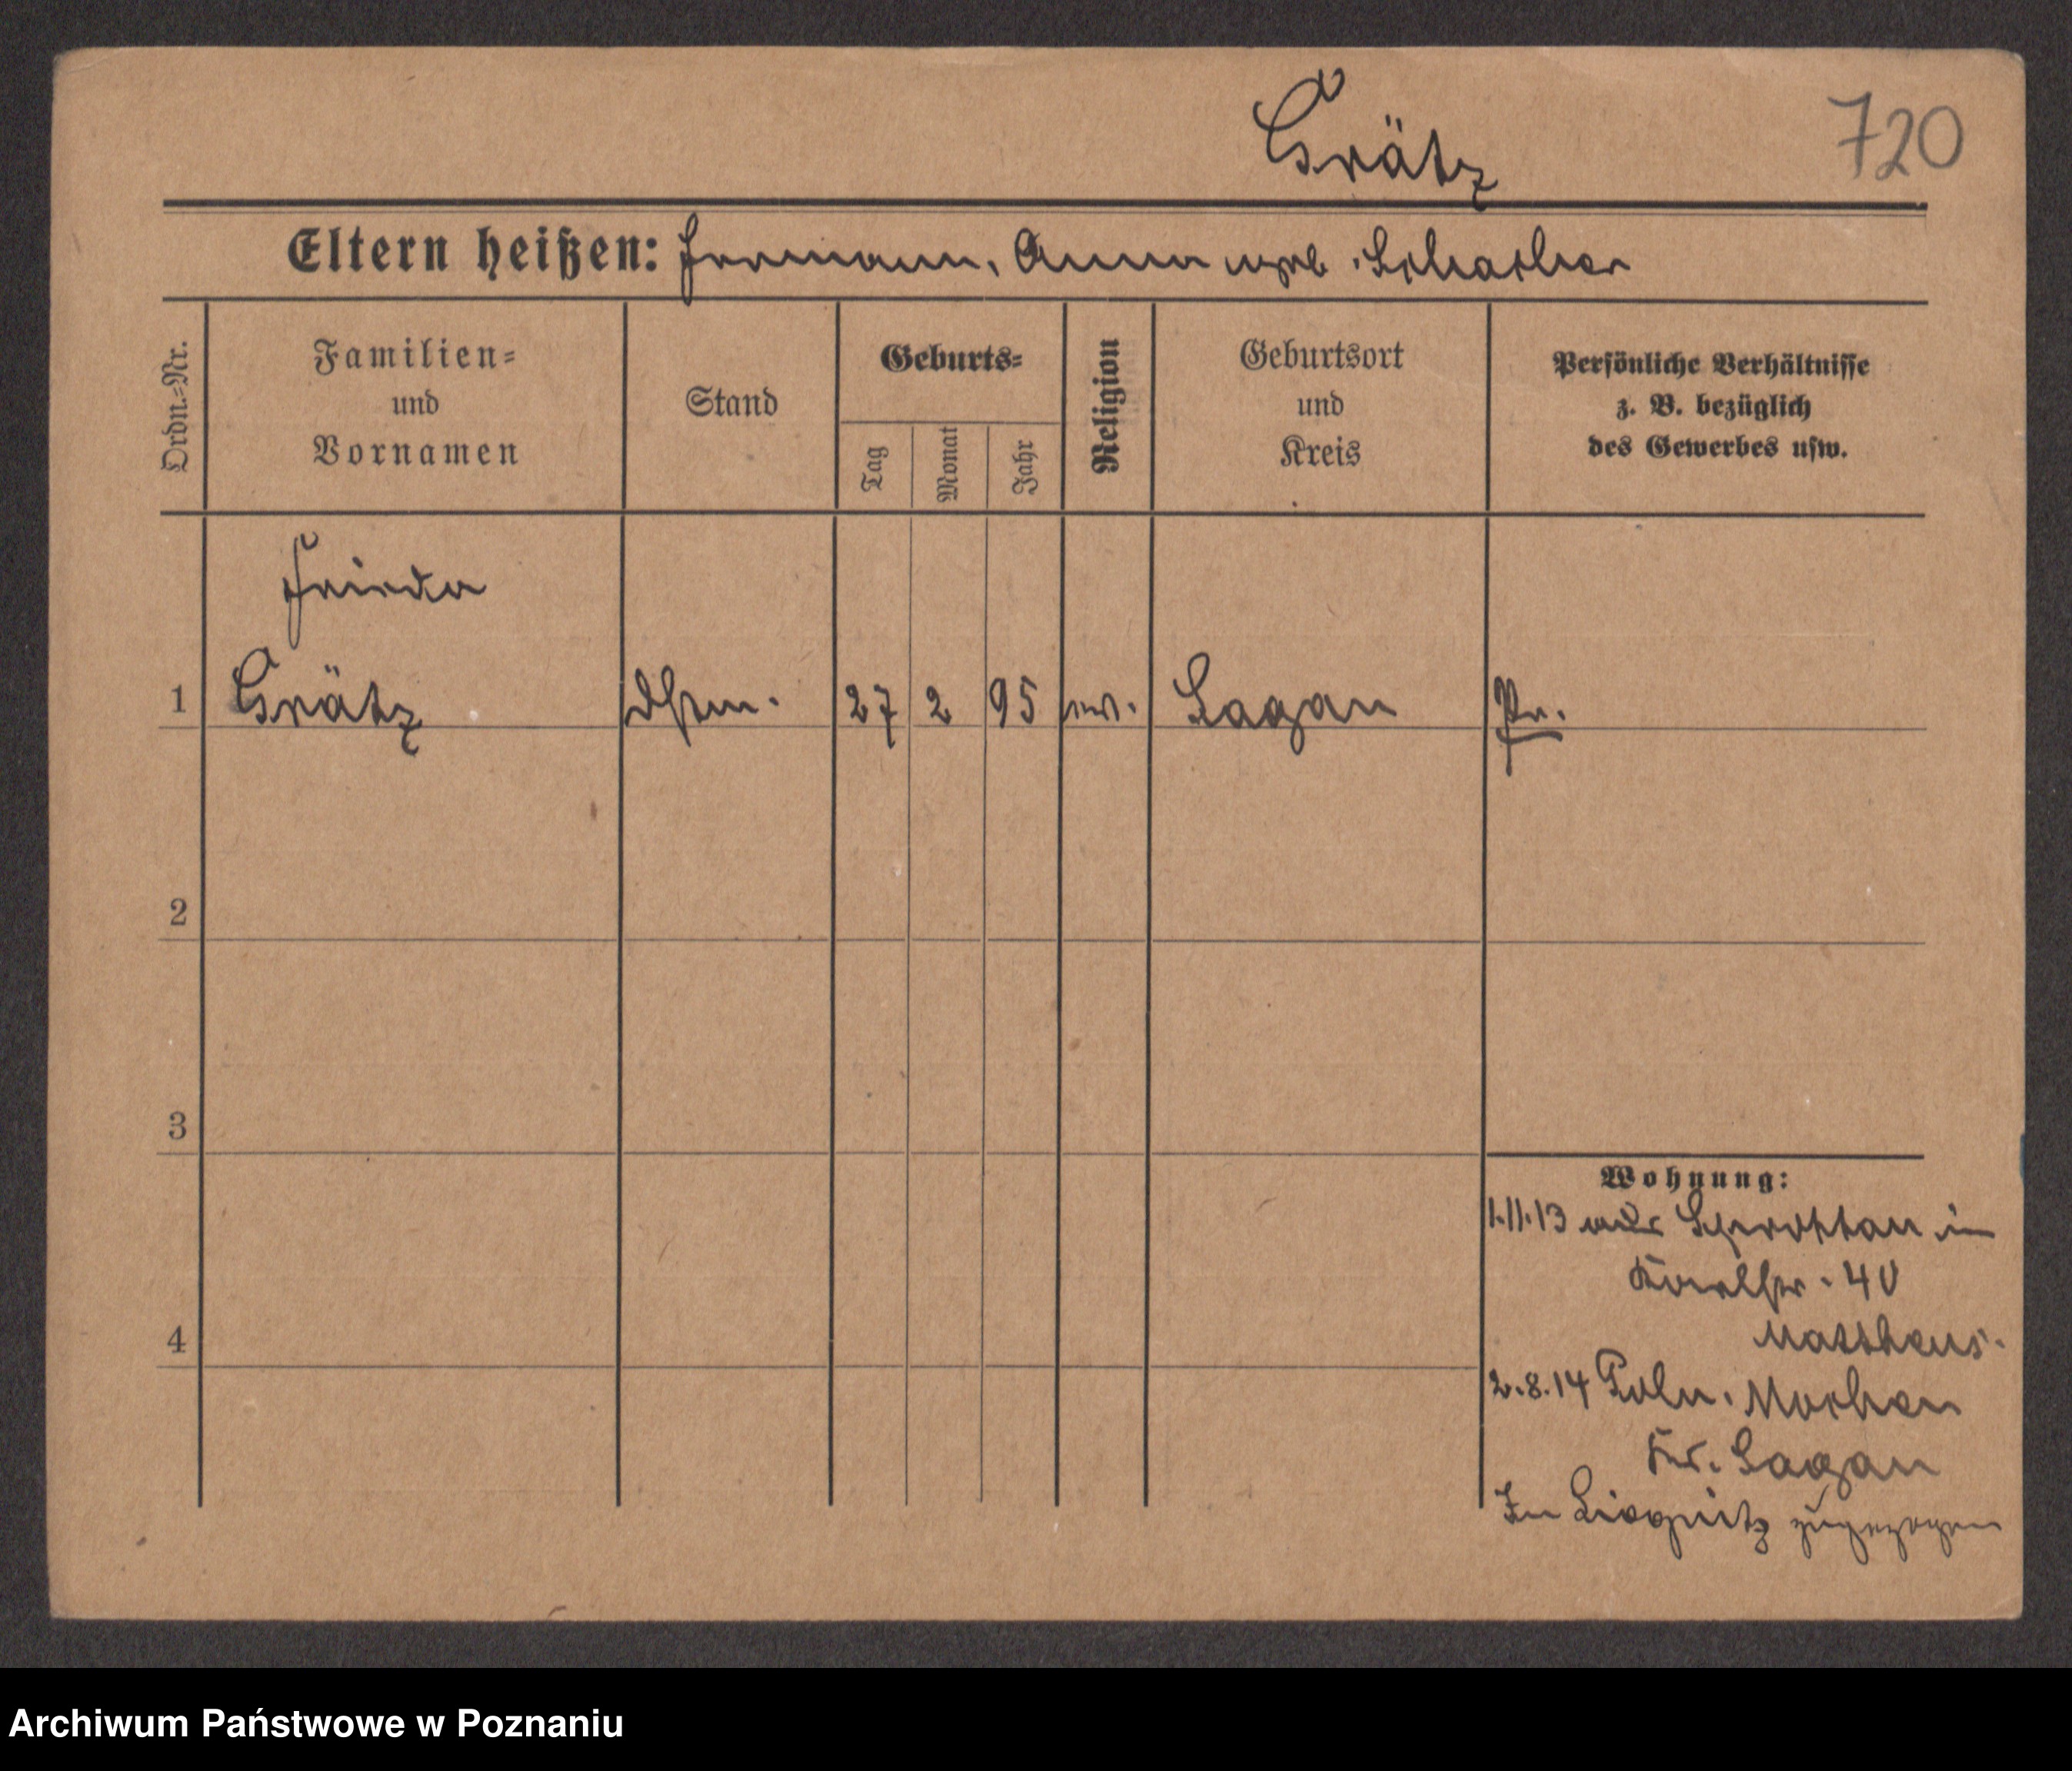 Grätz
720
Eltern heißen: Hermann, Anna geb. Schacher
Ordn.=Nr.
Familien=
und
Vornamen
Stand
Geburts=
Tag
Monat
Jahr
Religion
Geburtsort
und
Kreis
Persönliche Verhältnisse
z. B. bezüglich
des Gewerbes usw.
Frieda
1 Grätz 27 2 95 ev. Sagan Pr.
2
3
4
Wohnung:
1.11.13 aus Sprottau in
40
Mattheus.
2.8.14 Poln. Machen
Kr. Sagan
In Liegnitz zugezogen
Archiwum Państwowe w Poznaniu